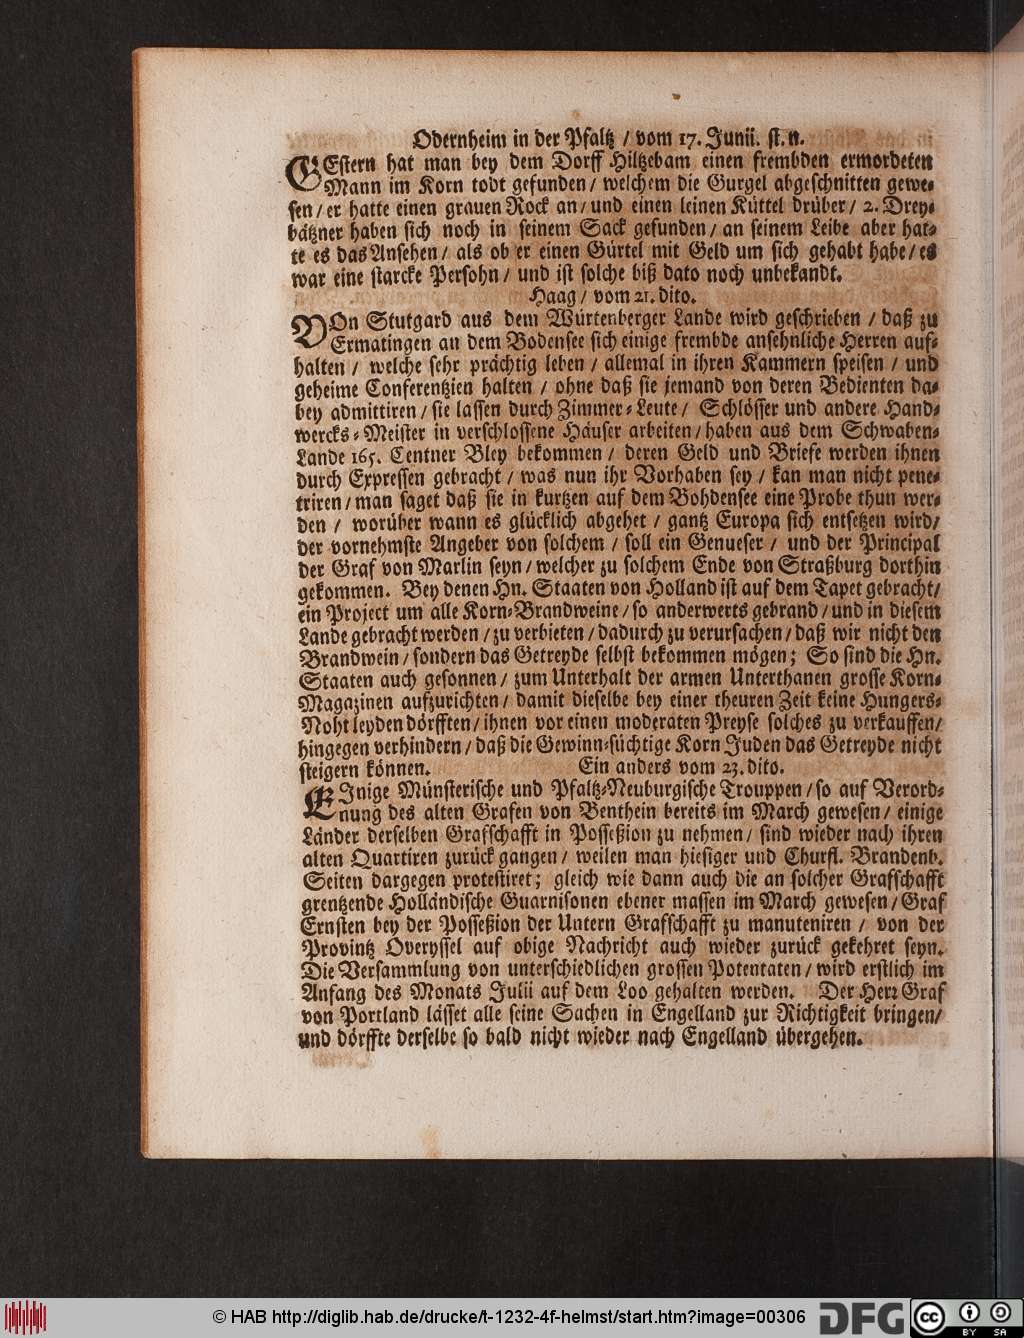 Odernheim in der Pfaltz / vom 17. Junii. st. n.
GEstern hat man bey dem Dorff Hiltzebam einen frembden ermordeten
Mann im Korn todt gefunden / welchem die Gurgel abgeschnitten gewe-
sen / er hatte einen grauen Rock an / und einen leinen Küttel drüber / 2. Drey-
bätzner haben sich noch in seinem Sack gefunden / an seinem Leibe aber hat-
te es das Ansehen / als ob er einen Gürtel mit Geld um sich gehabt habe / es
war eine starcke Persohn / und ist solche biß dato noch unbekandt.
Haag / vom 21. dito.
VOn Stutgard aus dem Würtenberger Lande wird geschrieben / daß zu
Ermatingen an dem Bodensee sich einige frembde ansehnliche Herren auf-
halten / welche sehr prächtig leben / allemal in ihren Kammern speisen / und
geheime Conferentzien halten / ohne daß sie jemand von deren Bedienten da-
bey admittiren / sie lassen durch Zimmer-Leute / Schlösser und andere Hand-
wercks-Meister in verschlossene Häuser arbeiten / haben aus dem Schwaben-
Lande 165. Centner Bley bekommen / deren Geld und Briefe werden ihnen
durch Expressen gebracht / was nun ihr Vorhaben sey / kan man nicht pene-
triren / man saget daß sie in kurtzen auf dem Bohdensee eine Probe thun wer-
den / worüber wann es glücklich abgehet / gantz Europa sich entsetzen wird /
der vornehmste Angeber von solchem / soll ein Genueser / und der Principal
der Graf von Marlin seyn / welcher zu solchem Ende von Straßburg dorthin
gekommen. Bey denen Hn. Staaten von Holland ist auf dem Tapet gebracht /
ein Project um alle Korn-Brandweine / so anderwerts gebrand / und in diesem
Lande gebracht werden / zu verbieten / dadurch zu verursachen / daß wir nicht den
Brandwein / sondern das Getreyde selbst bekommen mögen; So sind die Hn.
Staaten auch gesonnen / zum Unterhalt der armen Unterthanen grosse Korn-
Magazinen aufzurichten / damit dieselbe bey einer theuren Zeit keine Hungers-
Noht leyden dörfften / ihnen vor einen moderaten Preyse solches zu verkauffen /
hingegen verhindern / daß die Gewinn-süchtige Korn Juden das Getreyde nicht
steigern können. Ein anders vom 23. dito.
EInige Münsterische und Pfaltz-Neuburgische Trouppen / so auf Verord-
nung des alten Grafen von Benthein bereits im March gewesen / einige
Länder derselben Grafschafft in Posseßion zu nehmen / sind wieder nach ihren
alten Quartiren zurück gangen / weilen man hiesiger und Churfl. Brandenb.
Seiten dargegen protestiret; gleich wie dann auch die an solcher Grafschafft
grentzende Holländische Guarnisonen ebener massen im March gewesen / Graf
Ernsten bey der Posseßion der Untern Grafschafft zu manuteniren / von der
Provintz Overyssel auf obige Nachricht auch wieder zurück gekehret seyn.
Die Versammlung von unterschiedlichen grossen Potentaten / wird erstlich im
Anfang des Monats Julii auf dem Loo gehalten werden. Der Herr Graf
von Portland lässet alle seine Sachen in Engelland zur Richtigkeit bringen /
und dörffte derselbe so bald nicht wieder nach Engelland übergehen.
© HAB http://diglib.hab.de/drucke/t-1232-4f-helmst/start.htm?image=00306
DFG
cc BY SA